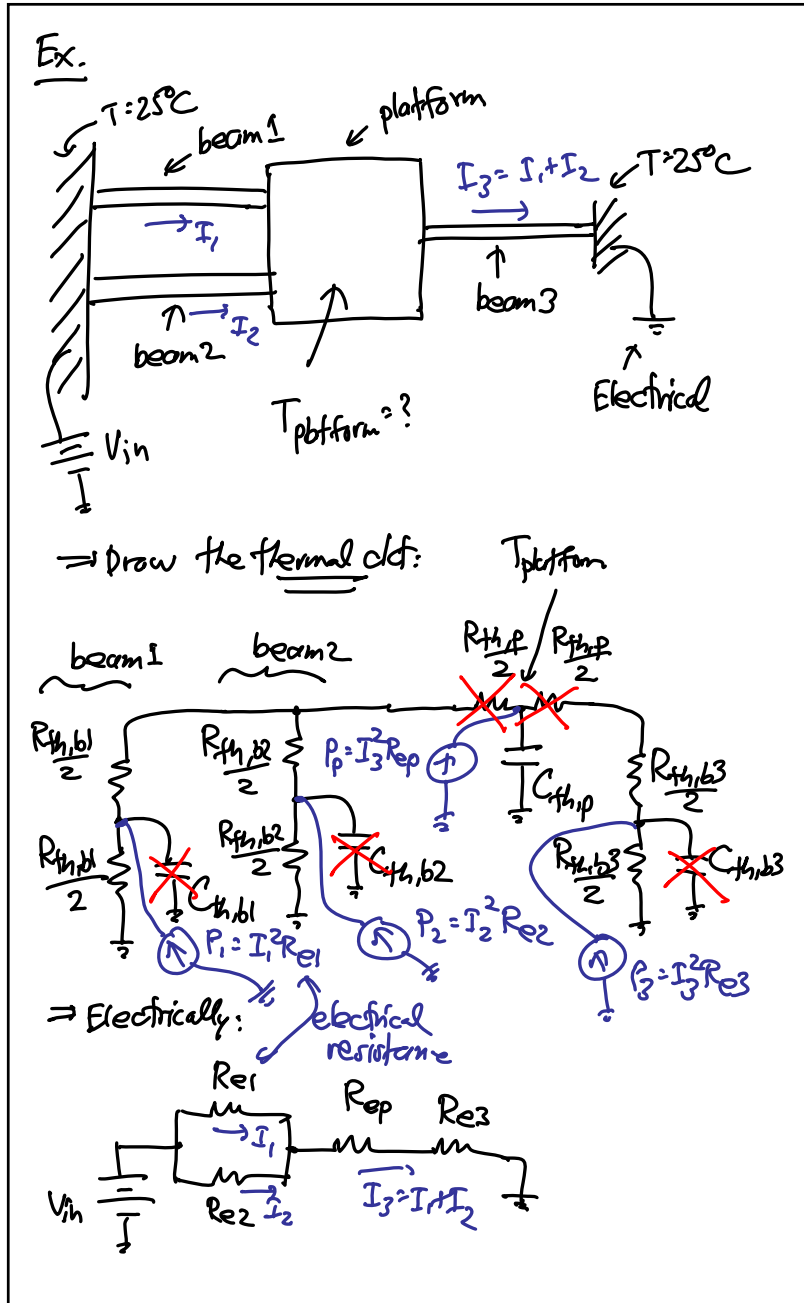 Ex.
T=25°C
beam1
platform
I₃ = I₁+I₂
T=25°C
I₁
beam2
I₂
beam3
Tplatform = ?
Electrical
Vin
⇒ Draw the thermal ckt:
Tplatform
beam1
beam2
Rth,p/2
Rth,p/2
Rth,b1/2
Rth,b2/2
Pp = I₃²Rep
Cth,p
Rth,b3/2
Rth,b1/2
Cth,b1
Rth,b2/2
Cth,b2
Rth,b3/2
Cth,b3
P₁ = I₁²Re1
P₂ = I₂²Re2
P₃ = I₃²Re3
⇒ Electrically:
electrical
resistance
Re1
I₁
Rep
Re3
Vin
Re2
I₂
I₃ = I₁+I₂